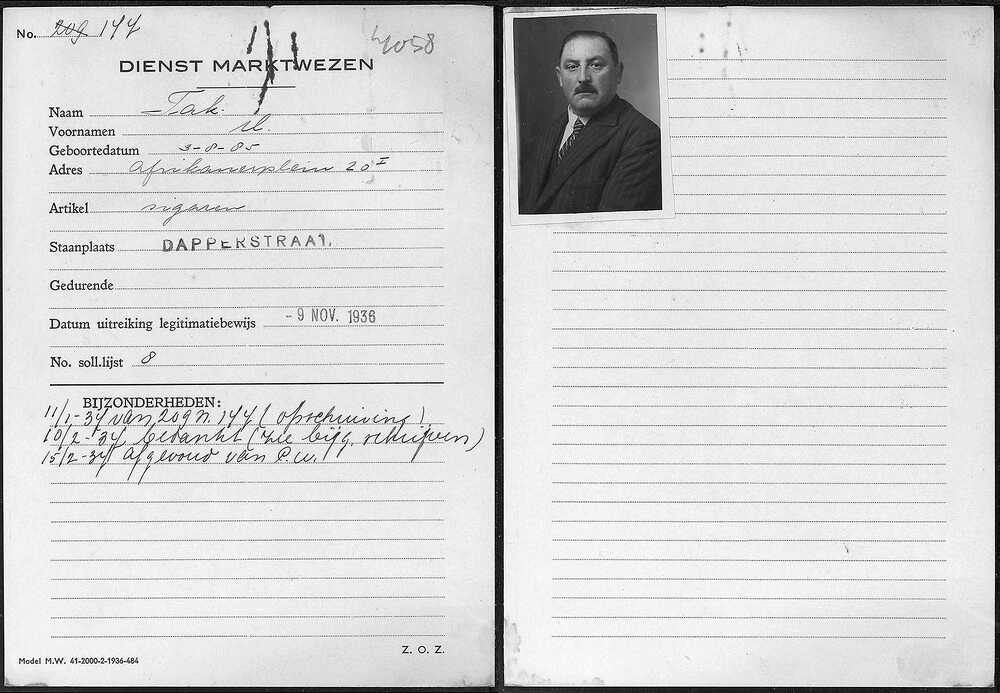 No. 209 177
4058
DIENST MARKTWEZEN
Naam Tak.
Voornamen
Geboortedatum 3-8-85
Adres Afrikanerplein 20 I
Artikel sigaren
Staanplaats DAPPERSTRAAT.
Gedurende
Datum uitreiking legitimatiebewijs - 9 NOV. 1936
No. soll.lijst 8
BIJZONDERHEDEN:
11/1-37 van 209 n. 177 (opschuiving)
10/2-37 bedankt (zie bijg. schrijven)
15/2-37 Afgevoerd van
Z. O. Z.
Model M.W. 41-2000-2-1936-484